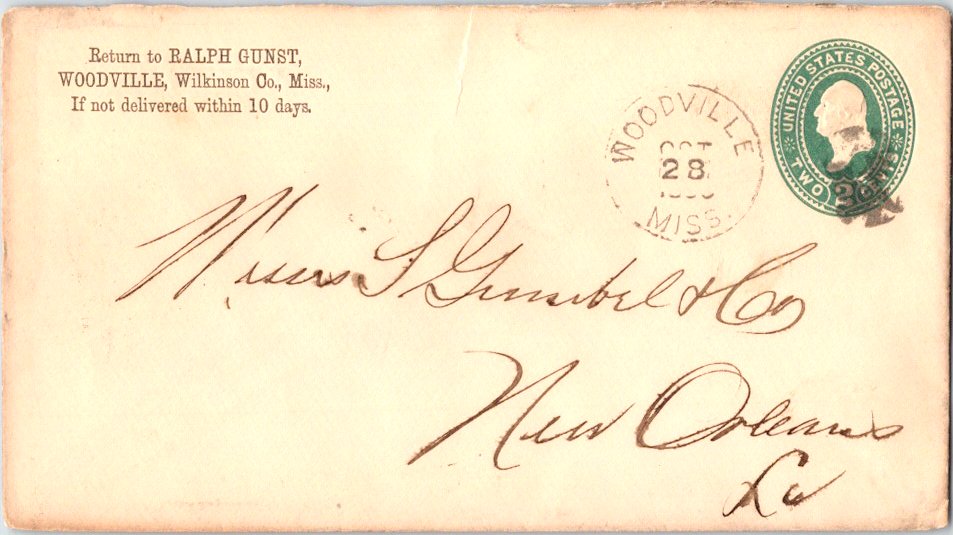 Return to RALPH GUNST,
WOODVILLE, Wilkinson Co., Miss.,
If not delivered within 10 days.
WOODVILLE
OCT
28
MISS.
UNITED STATES POSTAGE
TWO 2 CENTS
Messrs S & Co
New Orleans
La